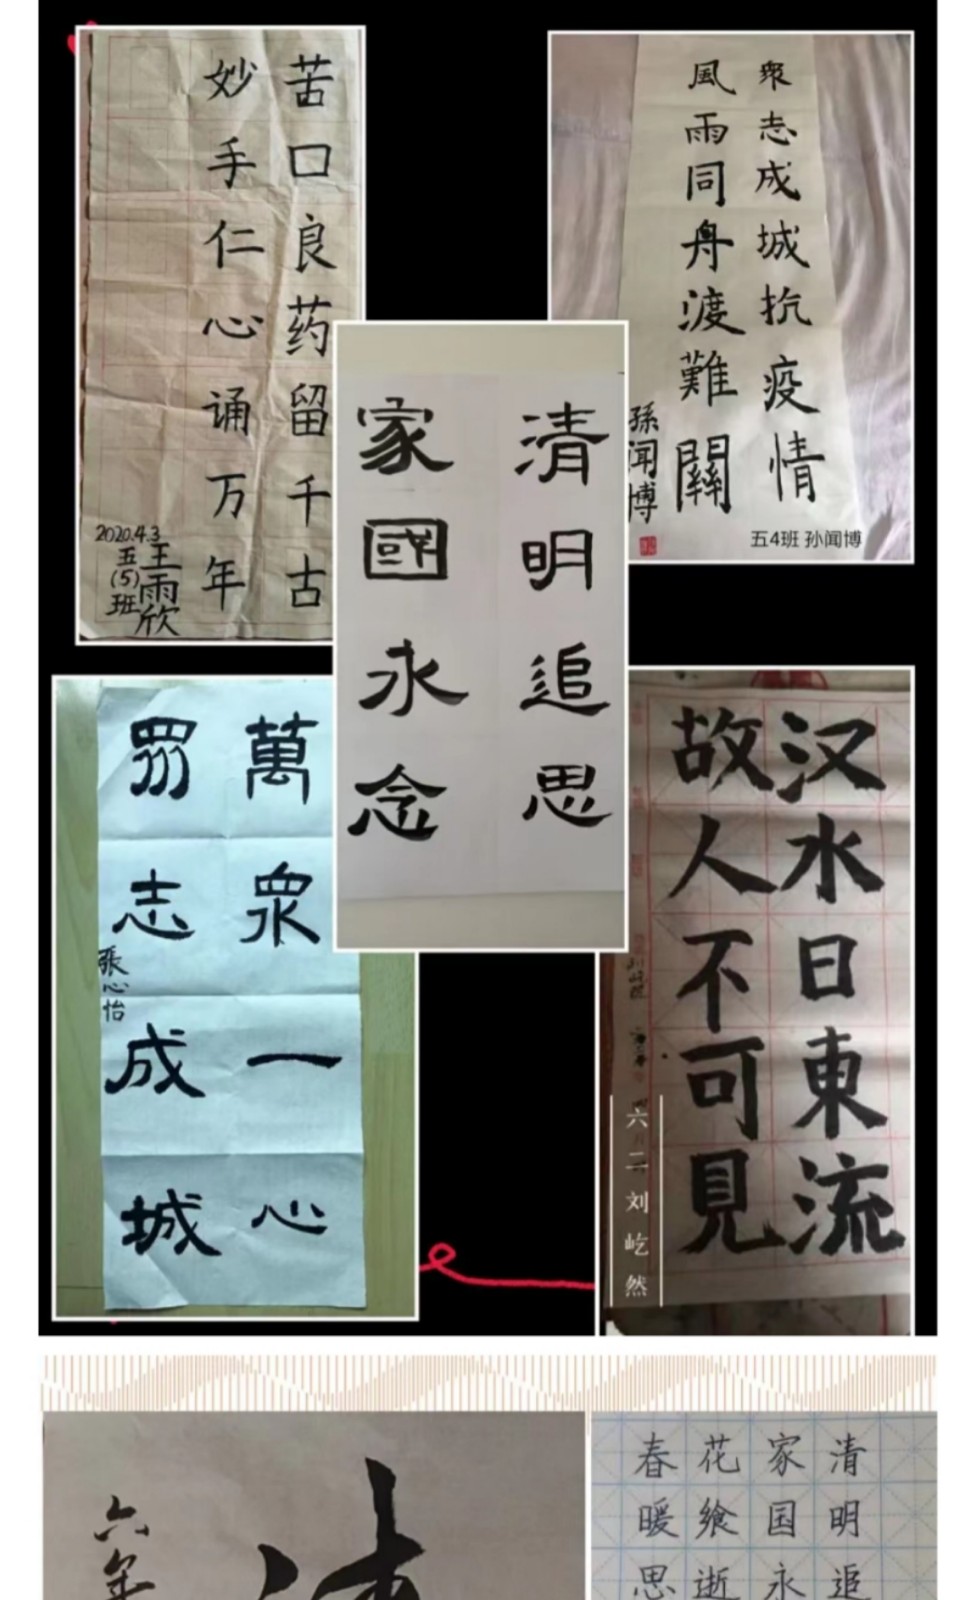 苦口良药留千古
妙手仁心诵万年
2020.4.3
五(5)班
王雨欣
衆志成城抗疫情
風雨同舟渡難關
孫闻博
五4班 孙闻博
清明追思
家國永念
萬衆一心
眾志成城
張心怡
汉水日東流
故人不可見
六二刘屹然
六年
清明追
家国永
花飨逝
春暖思